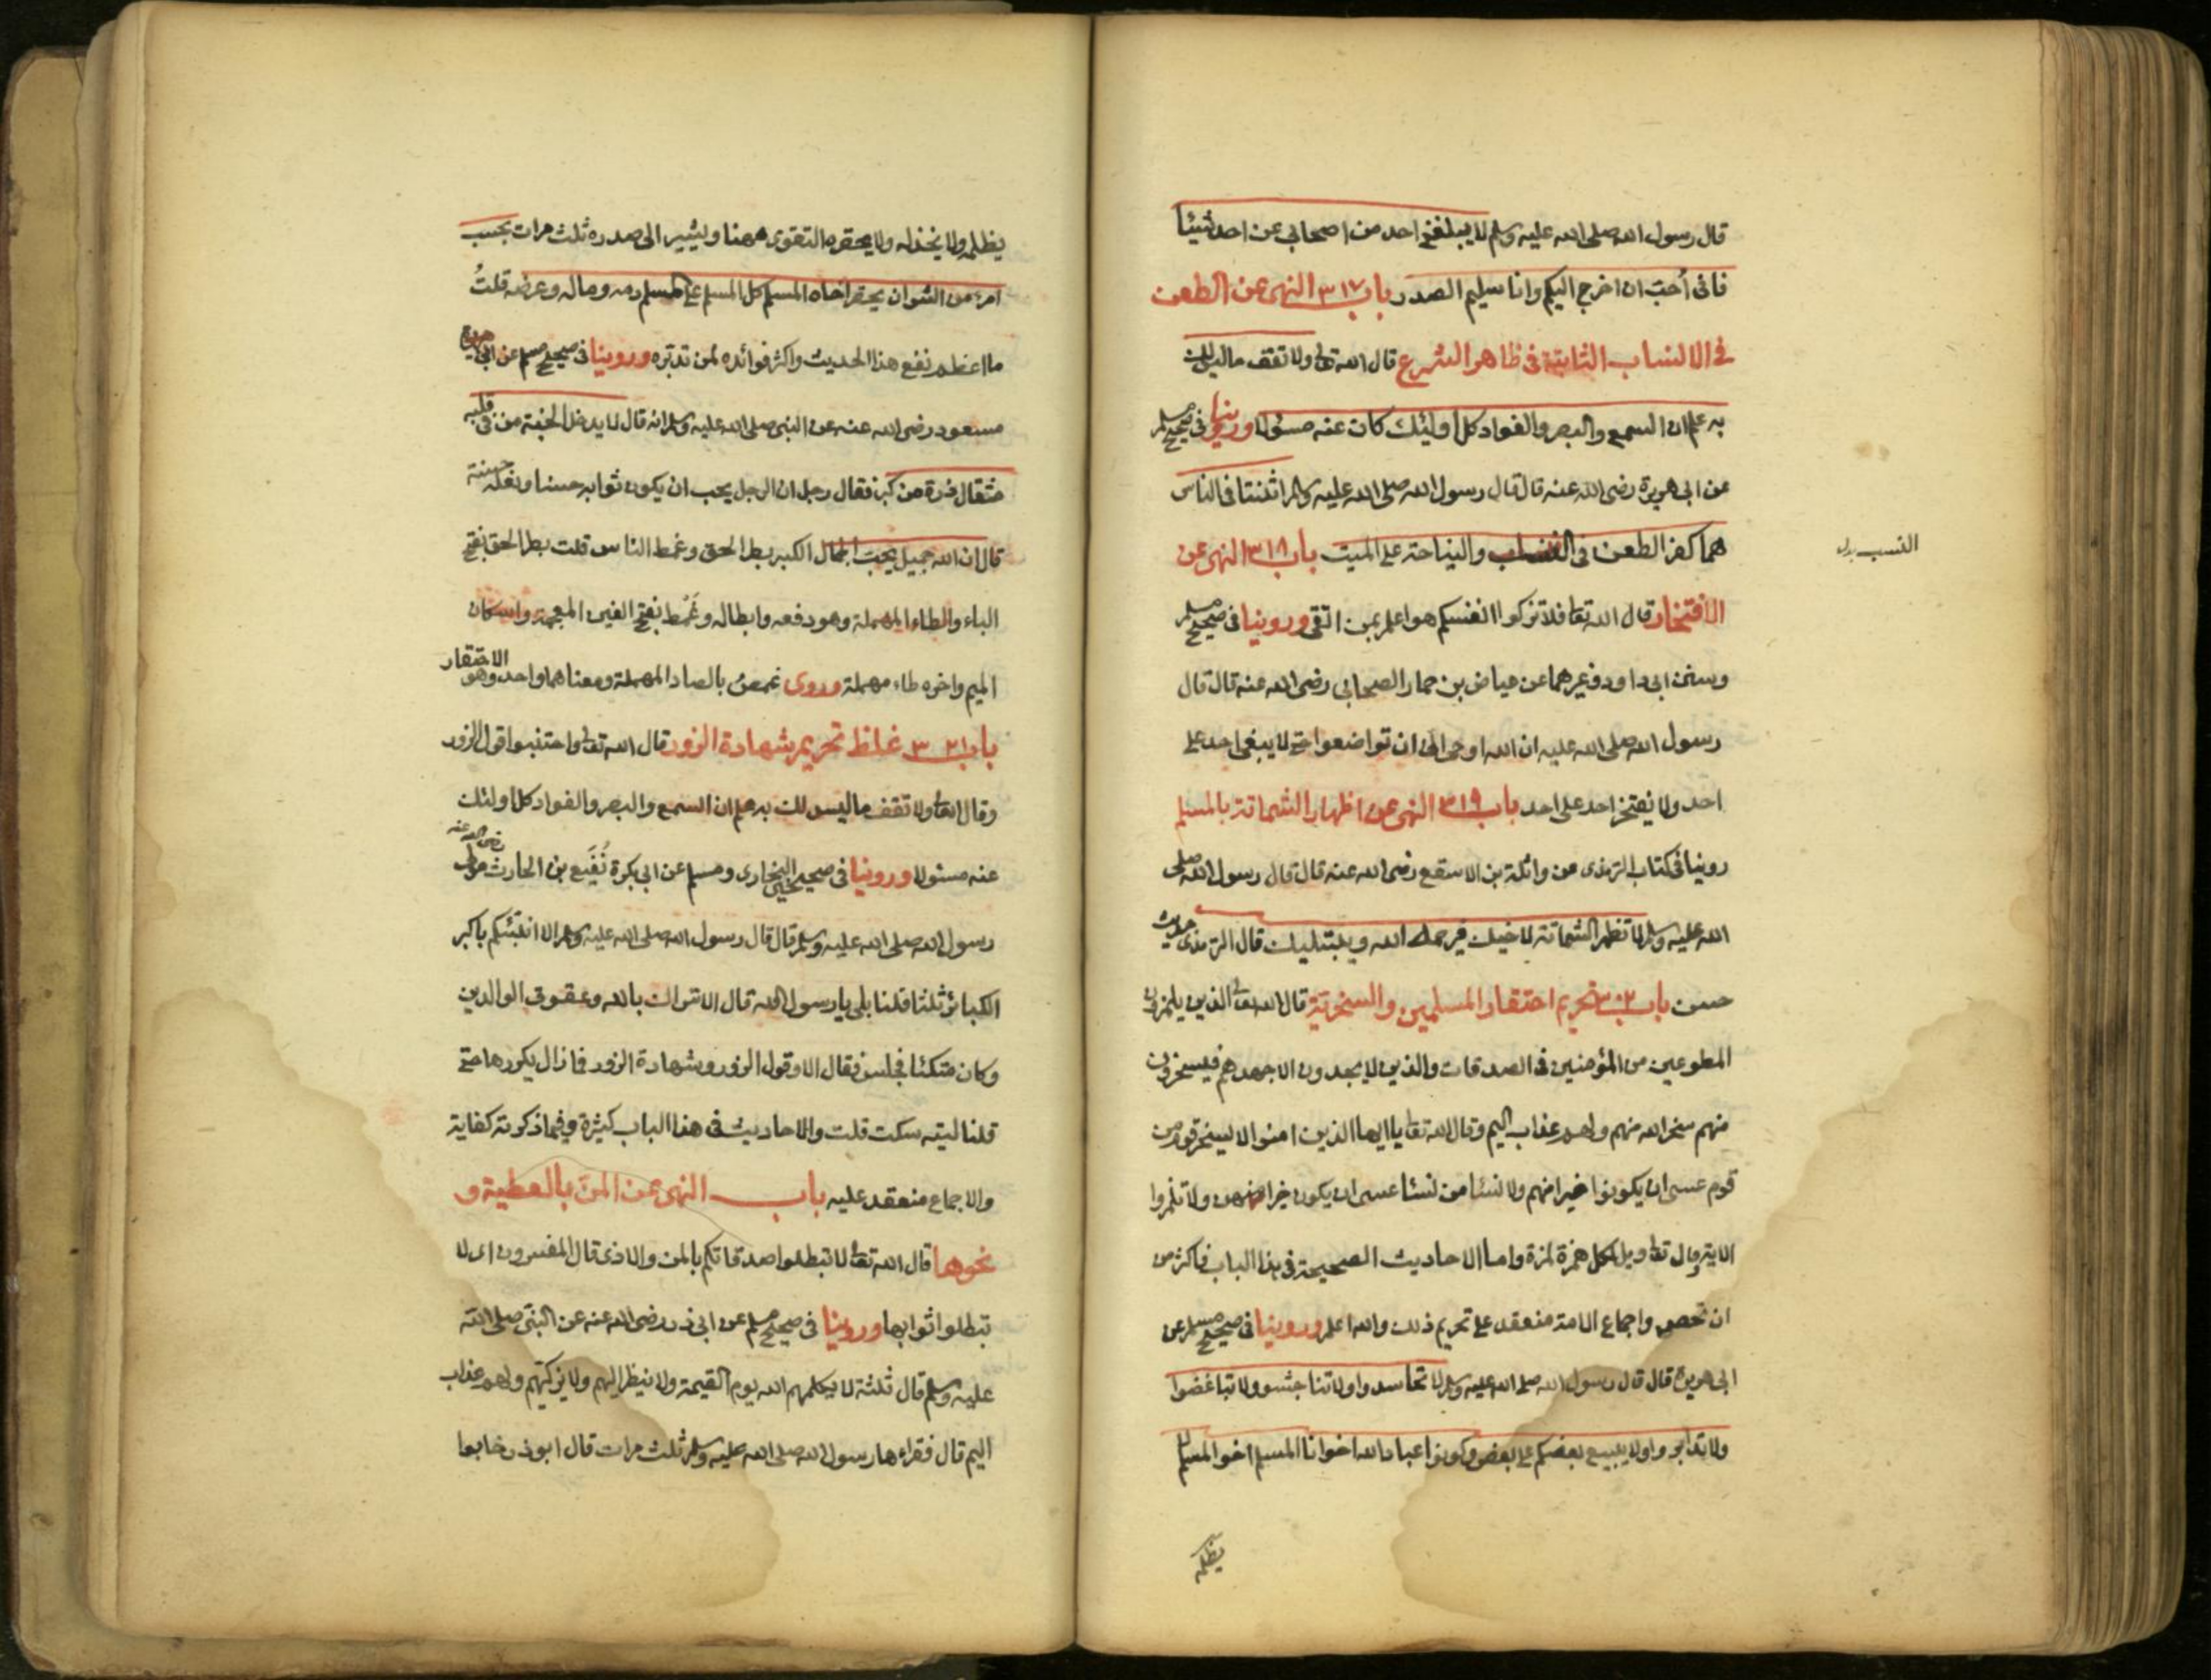 قال رسول الله صلى الله عليه وسلم لا يبلغني احد من اصحابي عن احد شيئا
فانى أحبّ ان اخرج اليكم وانا سليم الصدر باب ٣١٧ النهى عن الطعن
فى الانساب الثابتة فى ظاهر الشرع قال الله تعالى ولا تقف ما ليس لك
به علم ان السمع والبصر والفواد كل اولئك كان عنه مسئولا وروينا فى صحيح مسلم
عن ابى هريرة رضى الله عنه قال قال رسول الله صلى الله عليه وسلم اثنتنا فى الناس
هما كفر الطعن فى النسب والنياحة على الميت باب ٣١٨ النهى عن
النسب بدل
الافتخار قال الله تعا فلا تزكوا انفسكم هو اعلم بمن اتقى وروينا فى صحيح مسلم
وسنن ابى داود وغيرهما عن عياض بن حمار الصحابى رضى الله عنه قال قال
رسول الله صلى الله عليه ان الله اوحى الىّ ان تواضعوا حتى لا يبغى احد على
احد ولا يفتخر احد على احد باب ٣١٩ النهى عن اظهار الشماتة بالمسلم
روينا فى كتاب الترمذى عن واثلة بن الاسقع رضى الله عنه قال قال رسول الله صلى
الله عليه وسلم لا تظهر الشماتة لاخيك فيرحمه الله ويبتليك قال الترمذى حديث
حسن باب ٣٢٠ تحريم احتقار المسلمين والسخرية قال الله تعالى الذين يلمزون
المطوعين من المؤمنين فى الصدقات والذين لا يجدون الا جهدهم فيسخرون
منهم سخر الله منهم ولهم عذاب اليم وقال الله تعا يا ايها الذين امنوا لا يسخر قوم من
قوم عسى ان يكونوا خيرا منهم ولا نساء من نساء عسى ان يكون خيرا منهن ولا تلمزوا
الاية وقال تعا ويل لكل همزة لمزة واما الاحاديث الصحيحة فى هذا الباب فاكثر من
ان تحصى واجماع الامة منعقد على تحريم ذلك والله اعلم وروينا فى صحيح مسلم عن
ابى هريرة قال قال رسول الله صلى الله عليه وسلم لا تحاسدوا ولا تناجشوا ولا تباغضوا
ولا تدابروا ولا يبيع بعضكم على بعض وكونوا عباد الله اخوانا المسلم اخو المسلم لا
يظلمه
يظلمه ولا يخذله ولا يحقره التقوى ههنا ويشير الى صدره ثلث مرات بحسب
امرء من الشر ان يحقر اخاه المسلم كل المسلم على المسلم دمه وماله وعرضه قلتُ
ما اعظم نفع هذا الحديث واكثر فوائده لمن تدبّره وروينا فى صحيح مسلم عن ابن
مسعود رضى الله عنه عن النبى صلى الله عليه وسلم انه قال لا يدخل الجنة من فى قلبه
مثقال ذرة من كبر فقال رجل ان الرجل يحب ان يكون ثوابه حسنا ونعله حسنة
قال ان الله جميل يحبّ الجمال الكبر بطر الحق وغمط الناس قلت بطر الحق بفتح
الباء والطاء المهملة وهو دفعه وابطاله وغَمْط بفتح الغين المعجمة واسكان
الميم واخره طاء مهملة وروى غمص بالصاد المهملة ومعناهما واحد وهو الاحتقار
باب ٣٢١ غلظ تحريم شهادة الزور قال الله تعالى واجتنبوا قول الزور
وقال تعالى ولا تقف ما ليس لك به علم ان السمع والبصر والفواد كل اولئك
عنه مسئولا وروينا فى صحيحى البخارى ومسلم عن ابى بكرة نُفَيع بن الحارث رضى الله عنه
رسول الله صلى الله عليه وسلم قال قال رسول الله صلى الله عليه وسلم الا انبئكم باكبر
الكبائر ثلثا قلنا بلى يا رسول الله قال الاشراك بالله وعقوق الوالدين
وكان متكئا فجلس فقال الا وقول الزور وشهادة الزور فما زال يكررها حتى
قلنا ليته سكت قلت والاحاديث فى هذا الباب كثيرة وفيما ذكرته كفاية
والاجماع منعقد عليه باب النهى عن المنّ بالعطية و
نحوها قال الله تعالى لا تبطلوا صدقاتكم بالمن والاذى قال المفسرون اى لا
تبطلوا ثوابها وروينا فى صحيح مسلم عن ابى ذر رضى الله عنه عن النبى صلى الله
عليه وسلم قال ثلثة لا يكلمهم الله يوم القيمة ولا ينظر اليهم ولا يزكيهم ولهم عذاب
اليم قال فقراءها رسول الله صلى الله عليه وسلم ثلث مرات قال ابو ذر خابوا